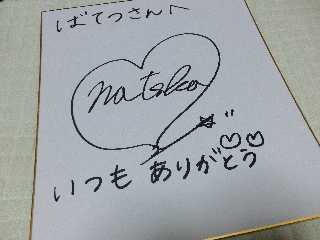 ばてつさんへ
natska
いつも ありがとう♡♡